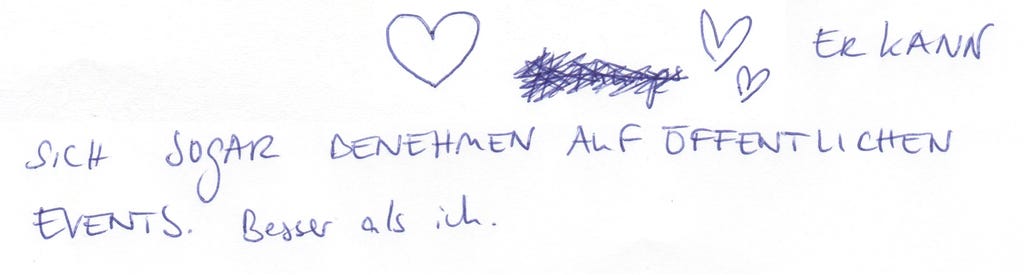 ER KANN
SICH SOGAR BENEHMEN AUF ÖFFENTLICHEN
EVENTS. Besser als ich.